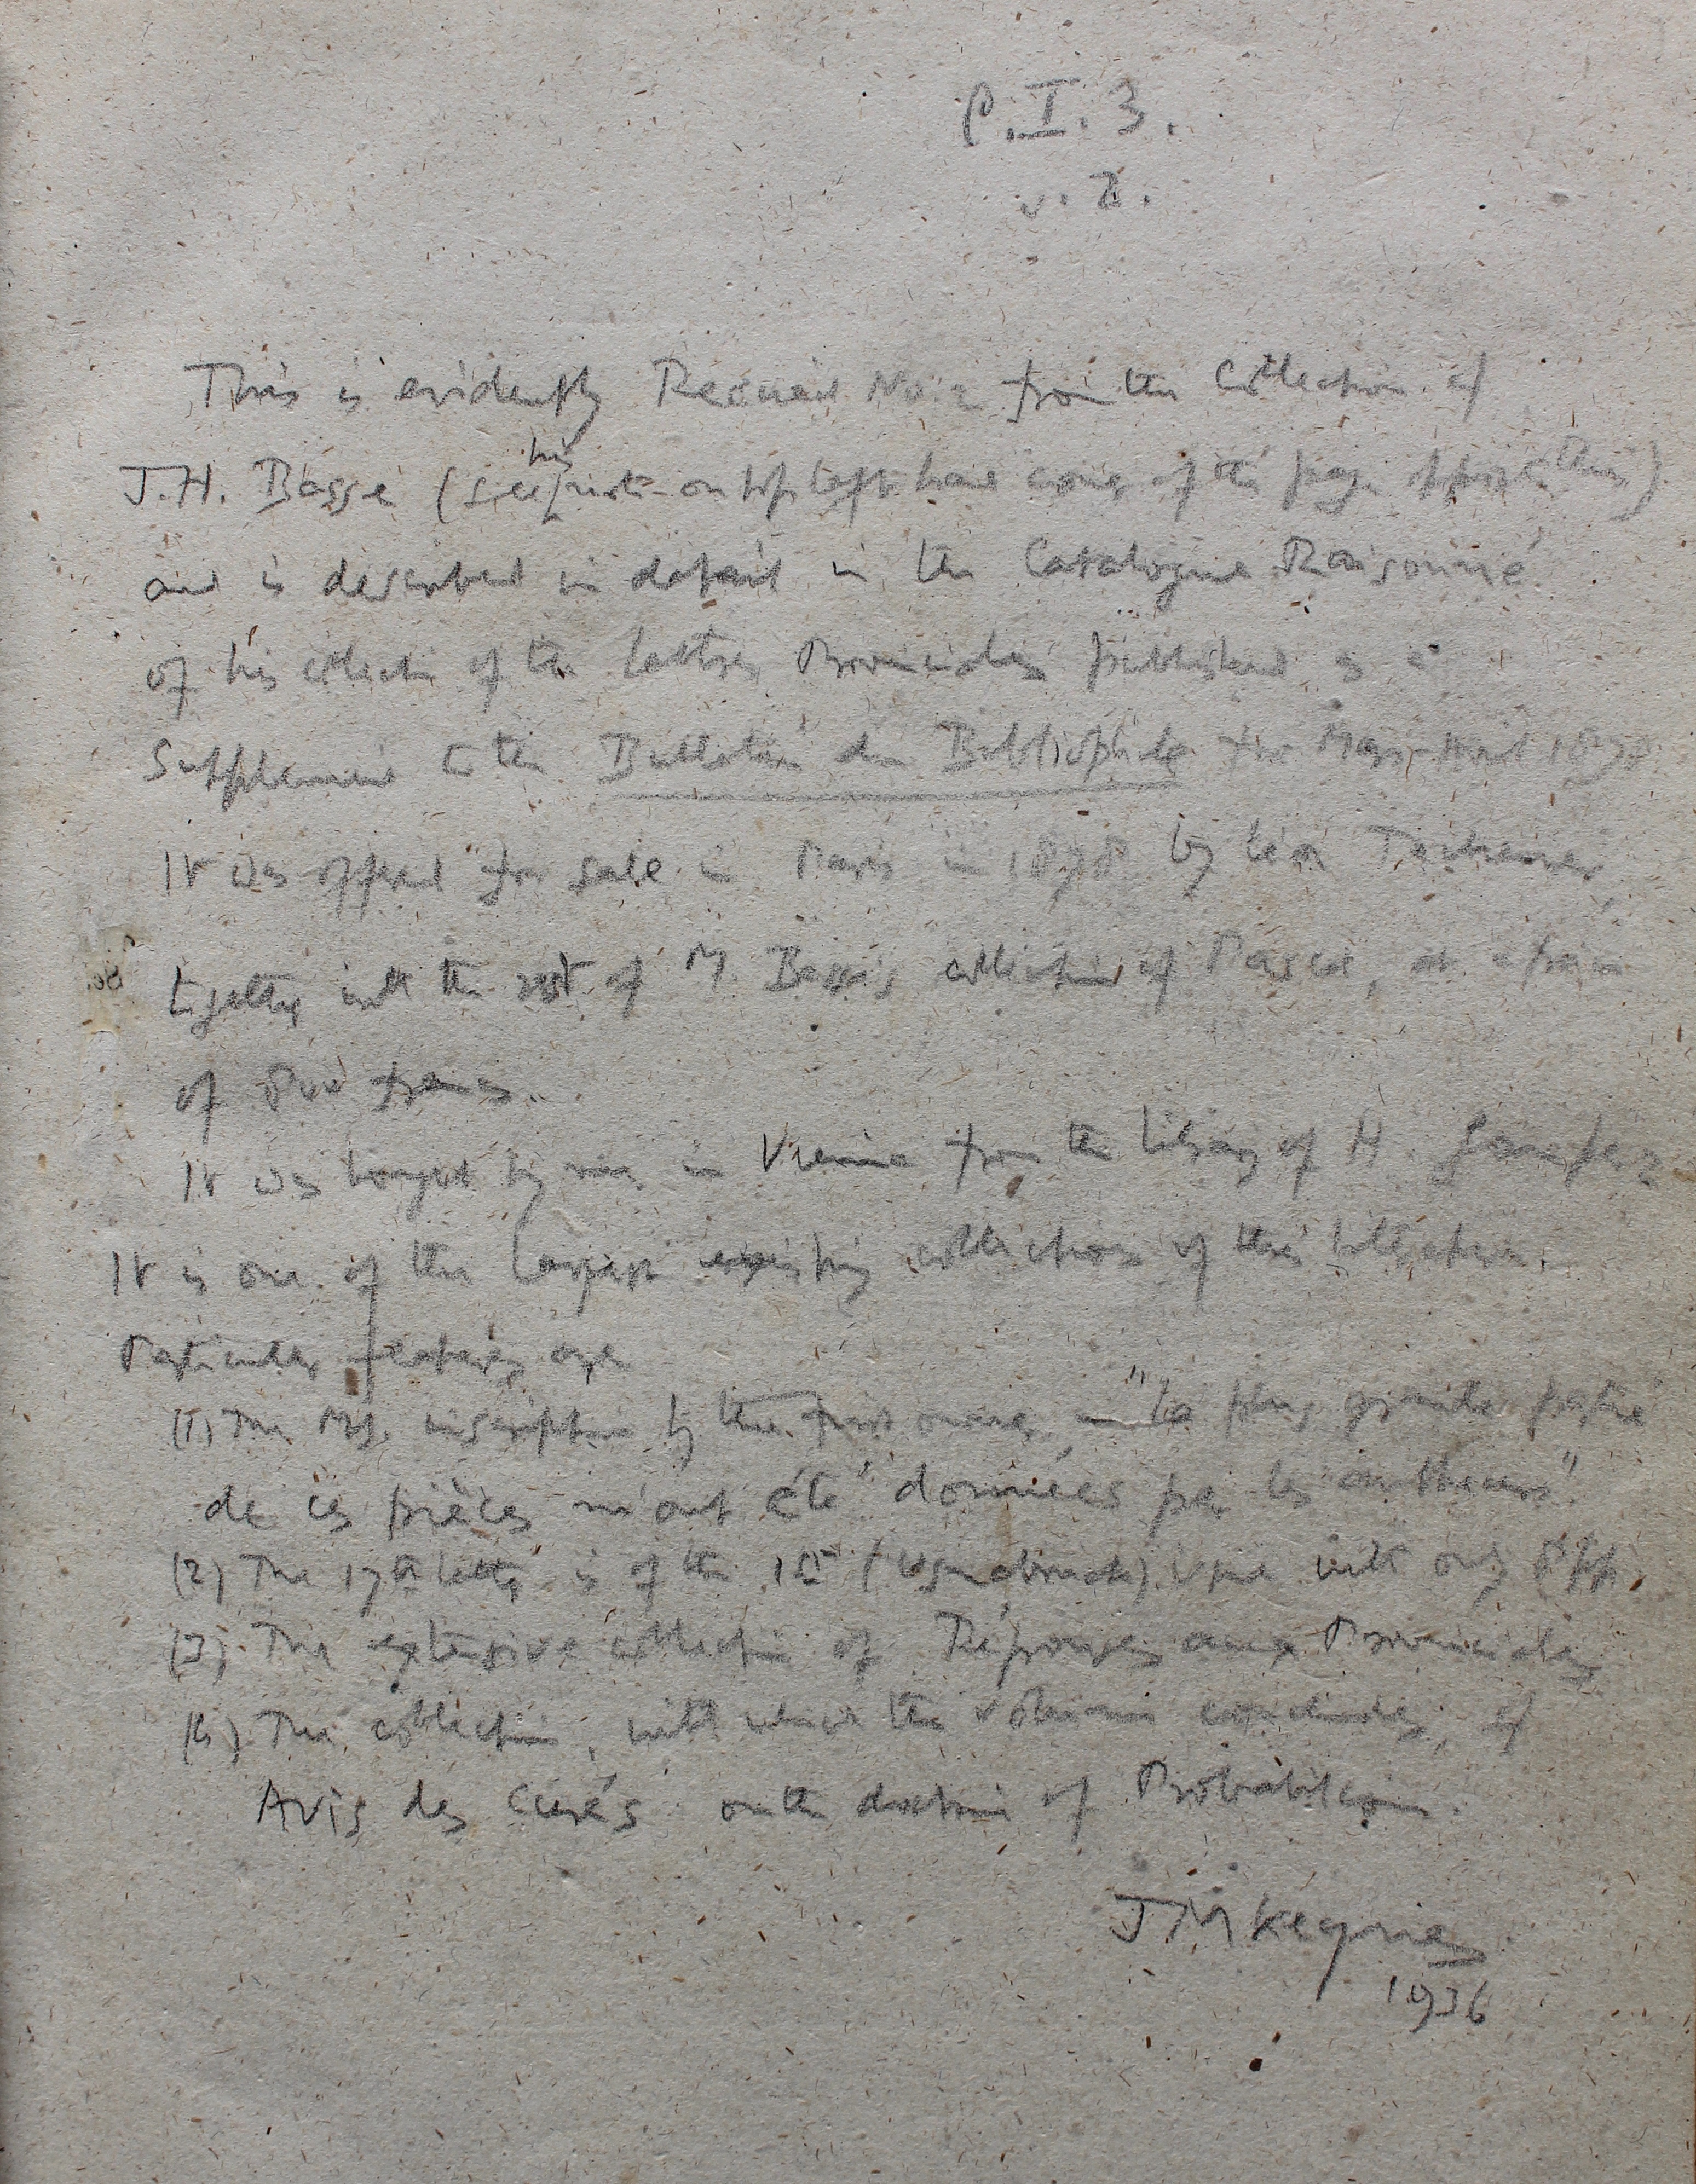 P.I.3.
v.2.
This is evidently Recueil No 2 from the collection of
J.H. Basse (see his note on top left hand corner of the page opposite this)
and is described in detail in the Catalogue Raisonné
of his collection of the Lettres Provinciales published as a
Supplement to the Bulletin du Bibliophile for Mars-Avril 1878
It was offered for sale in Paris in 1878 by Léon Techener,
together with the rest of M. Basse's collection of Pascal, at a price
of francs.
It was bought by me in Vienna from the library of H.
It is one of the largest existing collections of this collection.
Particular features are
(1) The MS. inscription by the first owner, "la plus grande partie
de ces pièces m'ont été données par les autheurs".
(2) The 17th letter is of the 1st (Osnabruck) issue with only 8 pp.
(3) The extensive collection of Réponses aux Provinciales
(4) The collection, with which the volume concludes, of
Avis des Curés on the doctrine of Probabilism.
JMKeynes
1936